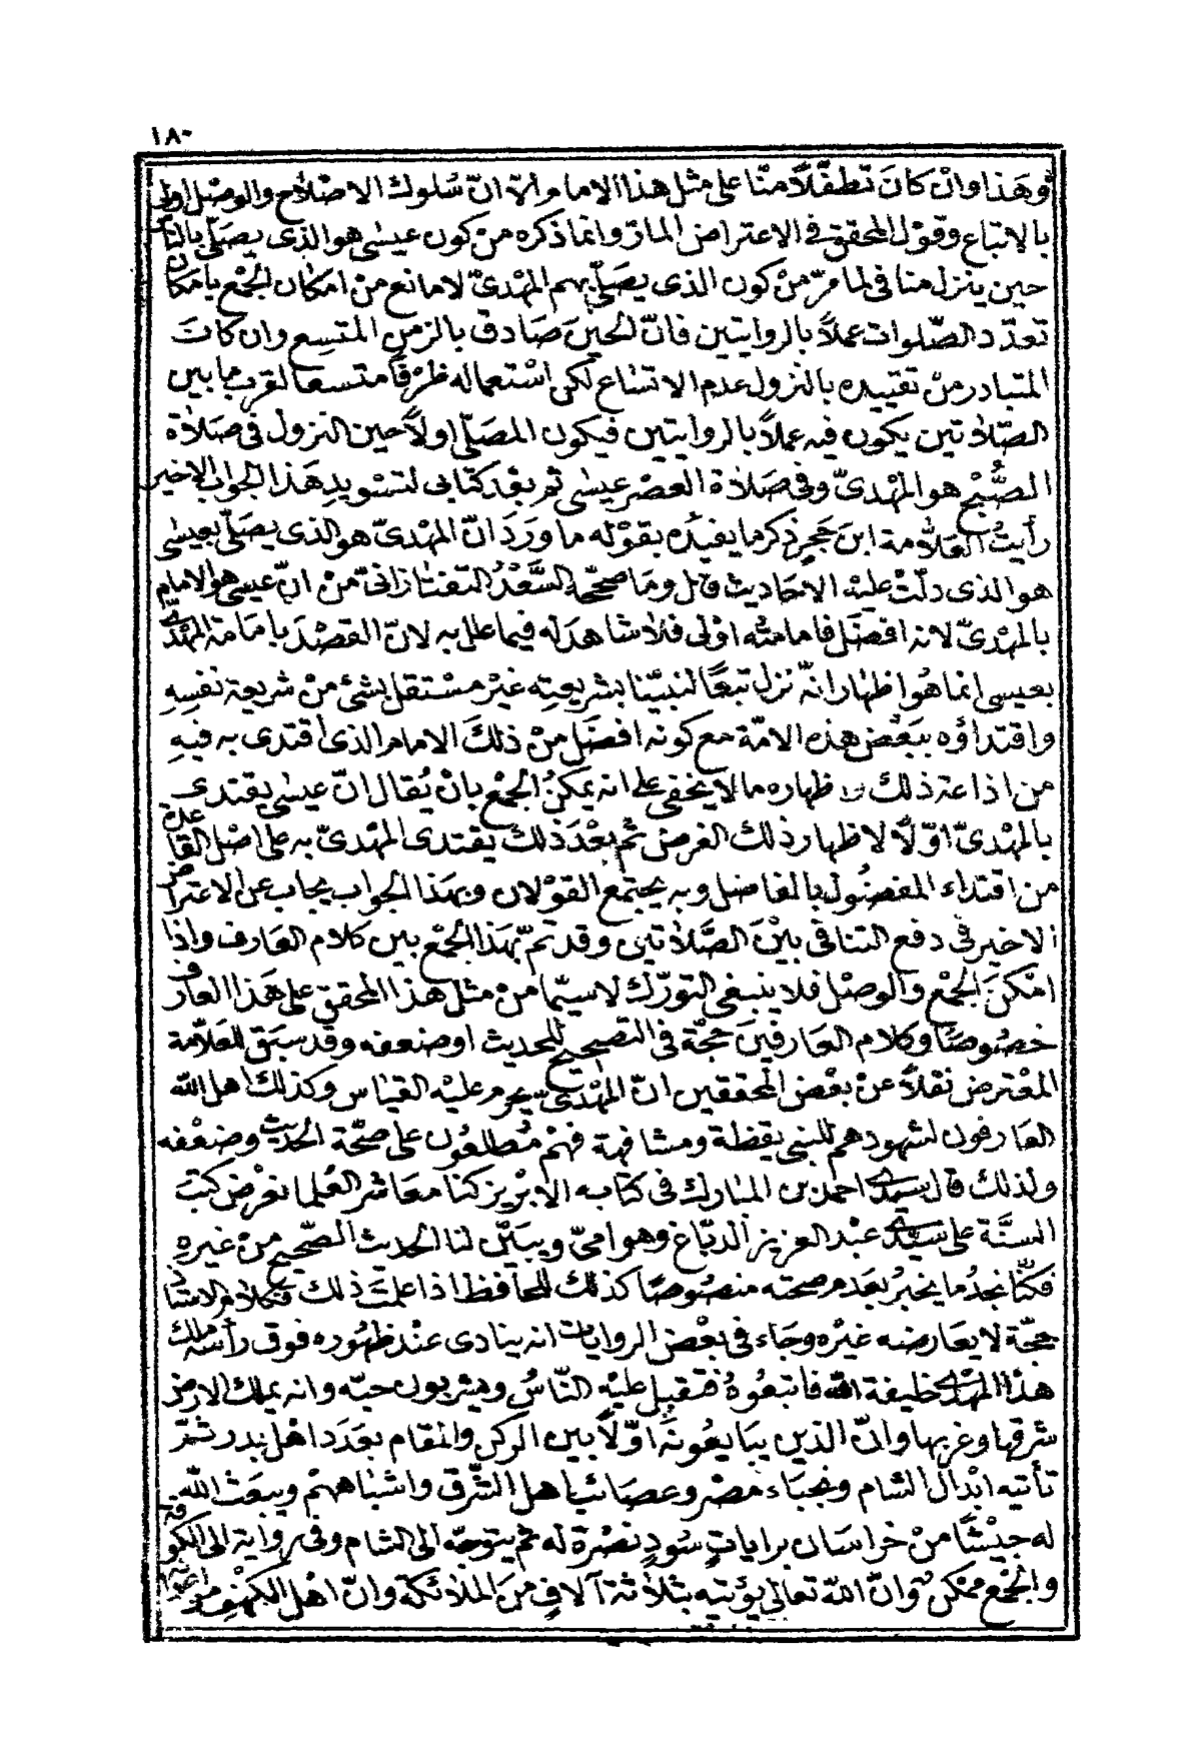 ١٨٠
وهذا وان كان تطفّلاً منّا على مثل هذا الامام الا انّ سُلوك الاصْلاح والوصْل اولى
بالاتباع وقوْل المحقق في الاعتراض المارّ وانما ذكره منْ كون عيسٰى هو الذى يصلّى بالناس
حين ينزل منافى لما مرّ منْ كون الذى يصَلّى بهم المهْدىّ لا مانع منْ امكان الجمْع بامكان
تعدّد الصّلوات عملاً بالروايتين فانّ الحينَ صَادق بالزمن المتسِع وان كانَ
المتبادر منْ تقييده بالنزول عدم الاتسٰاع لكن اسْتعماله ظرْفاً متسعا لقرب ما بين
الصّلاتين يكون فيه عملاً بالروايتين فيكون المصَلّى اولاً حين النزول فى صَلاة
الصُّبْح هو المهْدىّ وفى صَلاة العصْر عيسٰى ثم بعْد كتابى لتسْويدِ هَذا الجواب الاخير
رأيتُ العَلاّمة ابنَ حَجرٍ ذكر ما يفيدُه بقوْله ما ورَدَ انّ المهْدىّ هو الذى يصَلّى بعيسٰى
هو الذى دلّتْ عليْه الاحَاديث قال ومَا صحّحه السَّعْدُ التفتٰازانىّ منْ انّ عيسى هو الامام
بالمهْدىّ لانه افضَل فامامته اوْلى فلا شاهدَ له فيما علل به لانّ القصْدَ بامَامة المهْدىّ
بعيسى انما هُوا ظهَار انّه نزل تبعًا لنبيّنا بشريعتِه غيْر مسْتقل بشئ منْ شريعة نفسِهِ
واقتداؤه ببَعْض هذه الامّة مع كونه افضَل منْ ذلكَ الامام الذى اقتدى به فيهِ
من اذاعة ذلك واظهاره ما لا يخفى على انه يمكنُ الجمْع بانْ يُقال انّ عيسٰى يقتدى
بالمهْدىّ اوّلاً لاظهار ذلك الغرض ثم بعْدَ ذلك يقتدى المهْدىّ به على اصْل القاعدة
من اقتداء المفضُول بالفاضل وبه يجتمع القوْلان وبهَذا الجواب يجاب عن الاعتراض
الاخير فى دفع التنافى بيْن الصَّلاتين وقد تمّ بهَذا الجمْع بين كلام العَارف واذا
امْكنَ الجمْع والوصْل فلا ينبغى التورّك لاسيّما منْ مثل هذا المحقق على هَذا العارف
خصُوصًا وكلام العَارفينَ حجّة فى التصْحيح للحديث اوضعفه وقد سبَق للعَلاّمة
المعْترض نقلاً عنْ بعْض المحققين انّ المهْدى سيحرم عليْه القياس وكذلك اهل الله
العَارفون لشهودهم للنبى يقظة ومشافهة فهمْ مُطلعُون على صحّة الحديث وضعْفه
ولذلك قال سيدى احمد بن المبارك فى كتابه الابْريز كنا معَاشر العُلما نعْرض كتبَ
السنّة على سيدى عبْد العزيز الدبّاغ وهو امىّ ويبَيّن لنا الحديث الصّحيح منْ غيرهِ
فكنّا نجدُ ما يخبرُ بعَدم صحته منصُوصًا كذلك للحافظ اذا علمت ذلك فكلام الاستاذ
حجّة لا يعَارضه غيْره وجَاء فى بعْض الروايات انه ينادى عنْد ظهُوره فوق رأسه ملك
هذا المهْدى خليفة الله فاتبعُوهُ فتقبل عليْهِ النّاسُ ويشربون حبّه وانه يملك الارض
شرقها وغربها وانّ الذين يبَايعُونَه اوّلاً بين الركن والمقام بعَدَد اهْل بدر ثمّ
تأتيه ابْدال الشام ونجبَاء مصْر وعصَائب اهل الشّرق واشبٰاههمْ ويبعَث الله
له جيْشًا منْ خراسَان براياتٍ سُودٍ نصْرة له ثم يتوجّه الى الشام وفى رواية الى الكوفة
والجمْع ممْكن وانّ الله تعالى يؤيته بثلاثة آلافٍ منَ الملائكة وانّ اهْل الكهْف من اعوانه